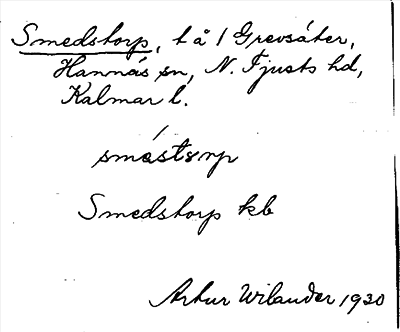 Smedstorp, t å 1 Grevsäter,
Hannäs sn, N. Tjusts hd,
Kalmar l.
Smedstorp kb
Artur Wilander 1930